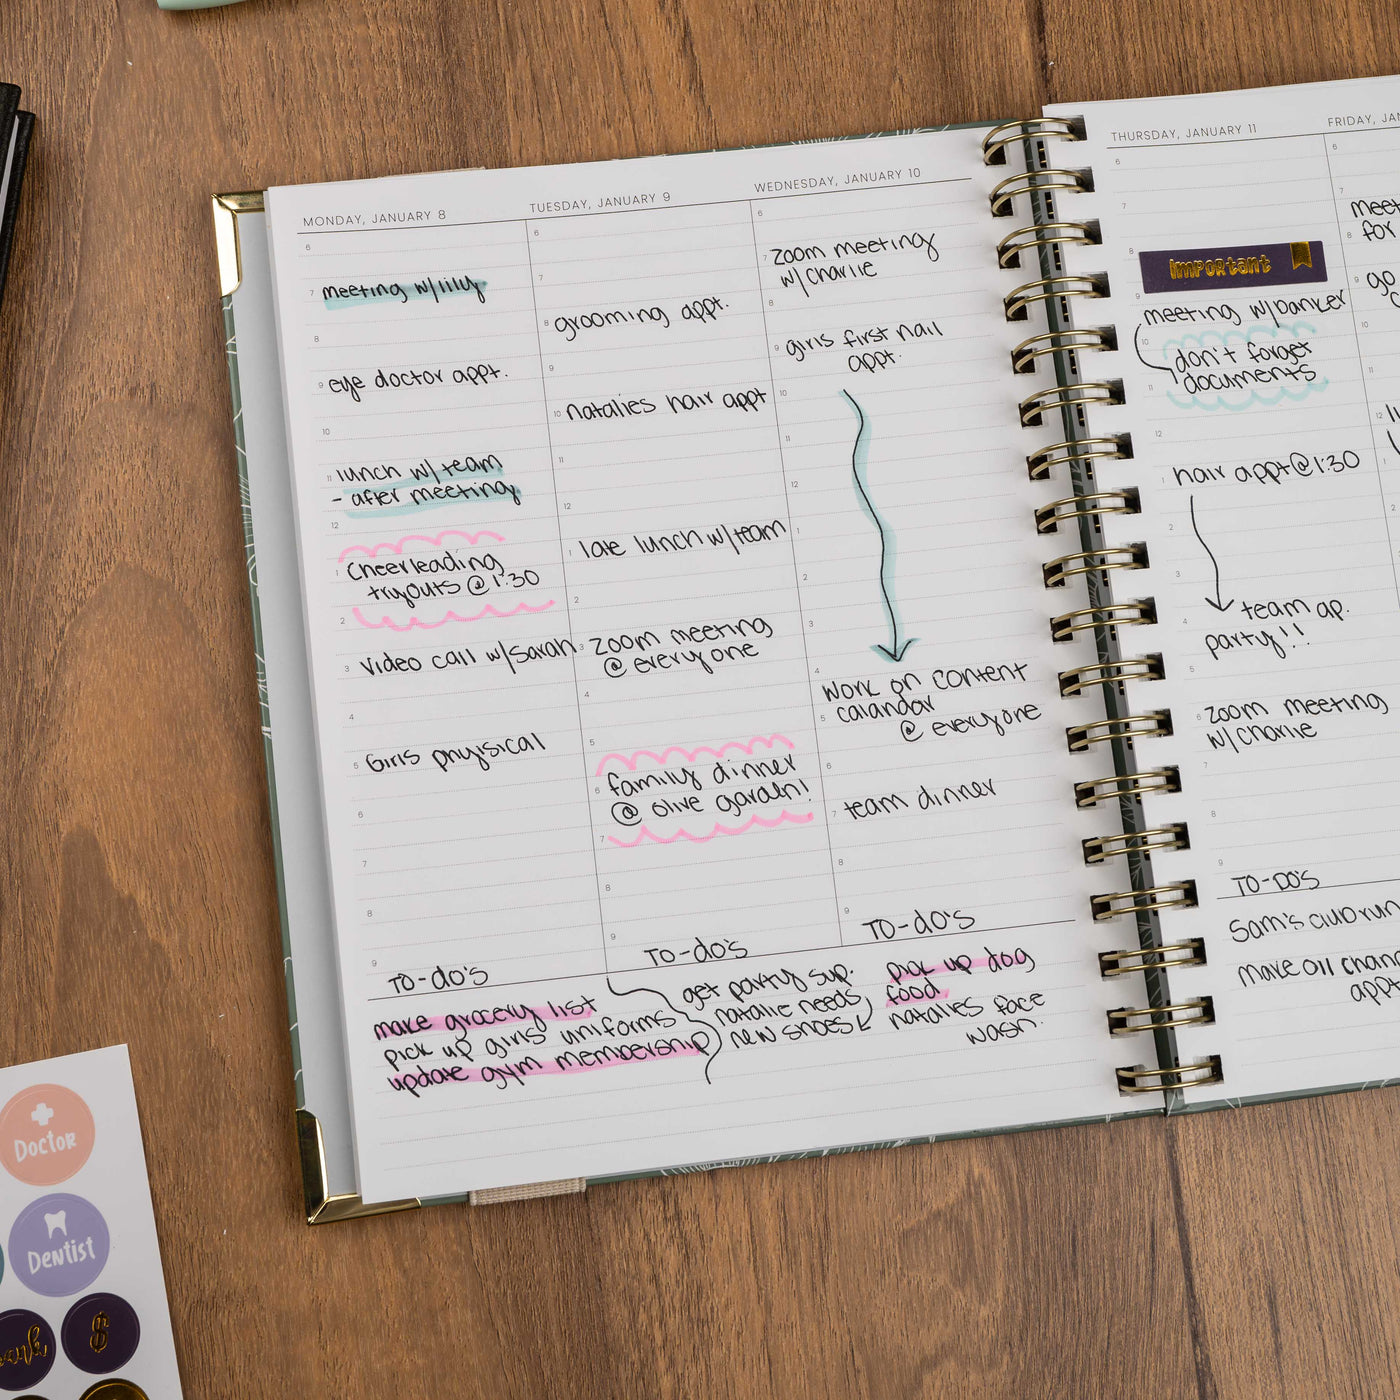 MONDAY, JANUARY 8
6
7 meeting w/lily
8
9 eye doctor appt.
10
11 lunch w/ team
- after meeting
12
Cheerleading
1 tryouts @ 1:30
2
3 video call w/Sarah
4
5 Girls phyisical
6
7
8
9
TO-do's
make grocery list
pick up girls' uniforms
update gym membership
TUESDAY, JANUARY 9
6
7
8 grooming appt.
9
10 natalies hair appt
11
12
1 late lunch w/team
2
3 zoom meeting
@ everyone
4
5
family dinner
6 @ olive garden!
7
8
9
TO-do's
get party sup.
natalie needs
new shoes
WEDNESDAY, JANUARY 10
6
7 zoom meeting
w/ Charlie
8
9 girls first nail
appt.
10
11
12
1
2
3
4
work on content
5 calandar
@ everyone
6
7 team dinner
8
9
TO-do's
pick up dog
food
natalies face
wash.
THURSDAY, JANUARY 11
6
7
8
Important
9
meeting w/banker
10
don't forget
11 documents
12
1 hair appt@1:30
2
3
team ap.
4 party!!
5
6 zoom meeting
w/ Charlie
7
8
9
TO-DO'S
Sam's club run
make oil chan
appt
FRIDAY, JAN
6
7
meet
8 for
9 go
10
11
12
1
2
Doctor
Dentist
$